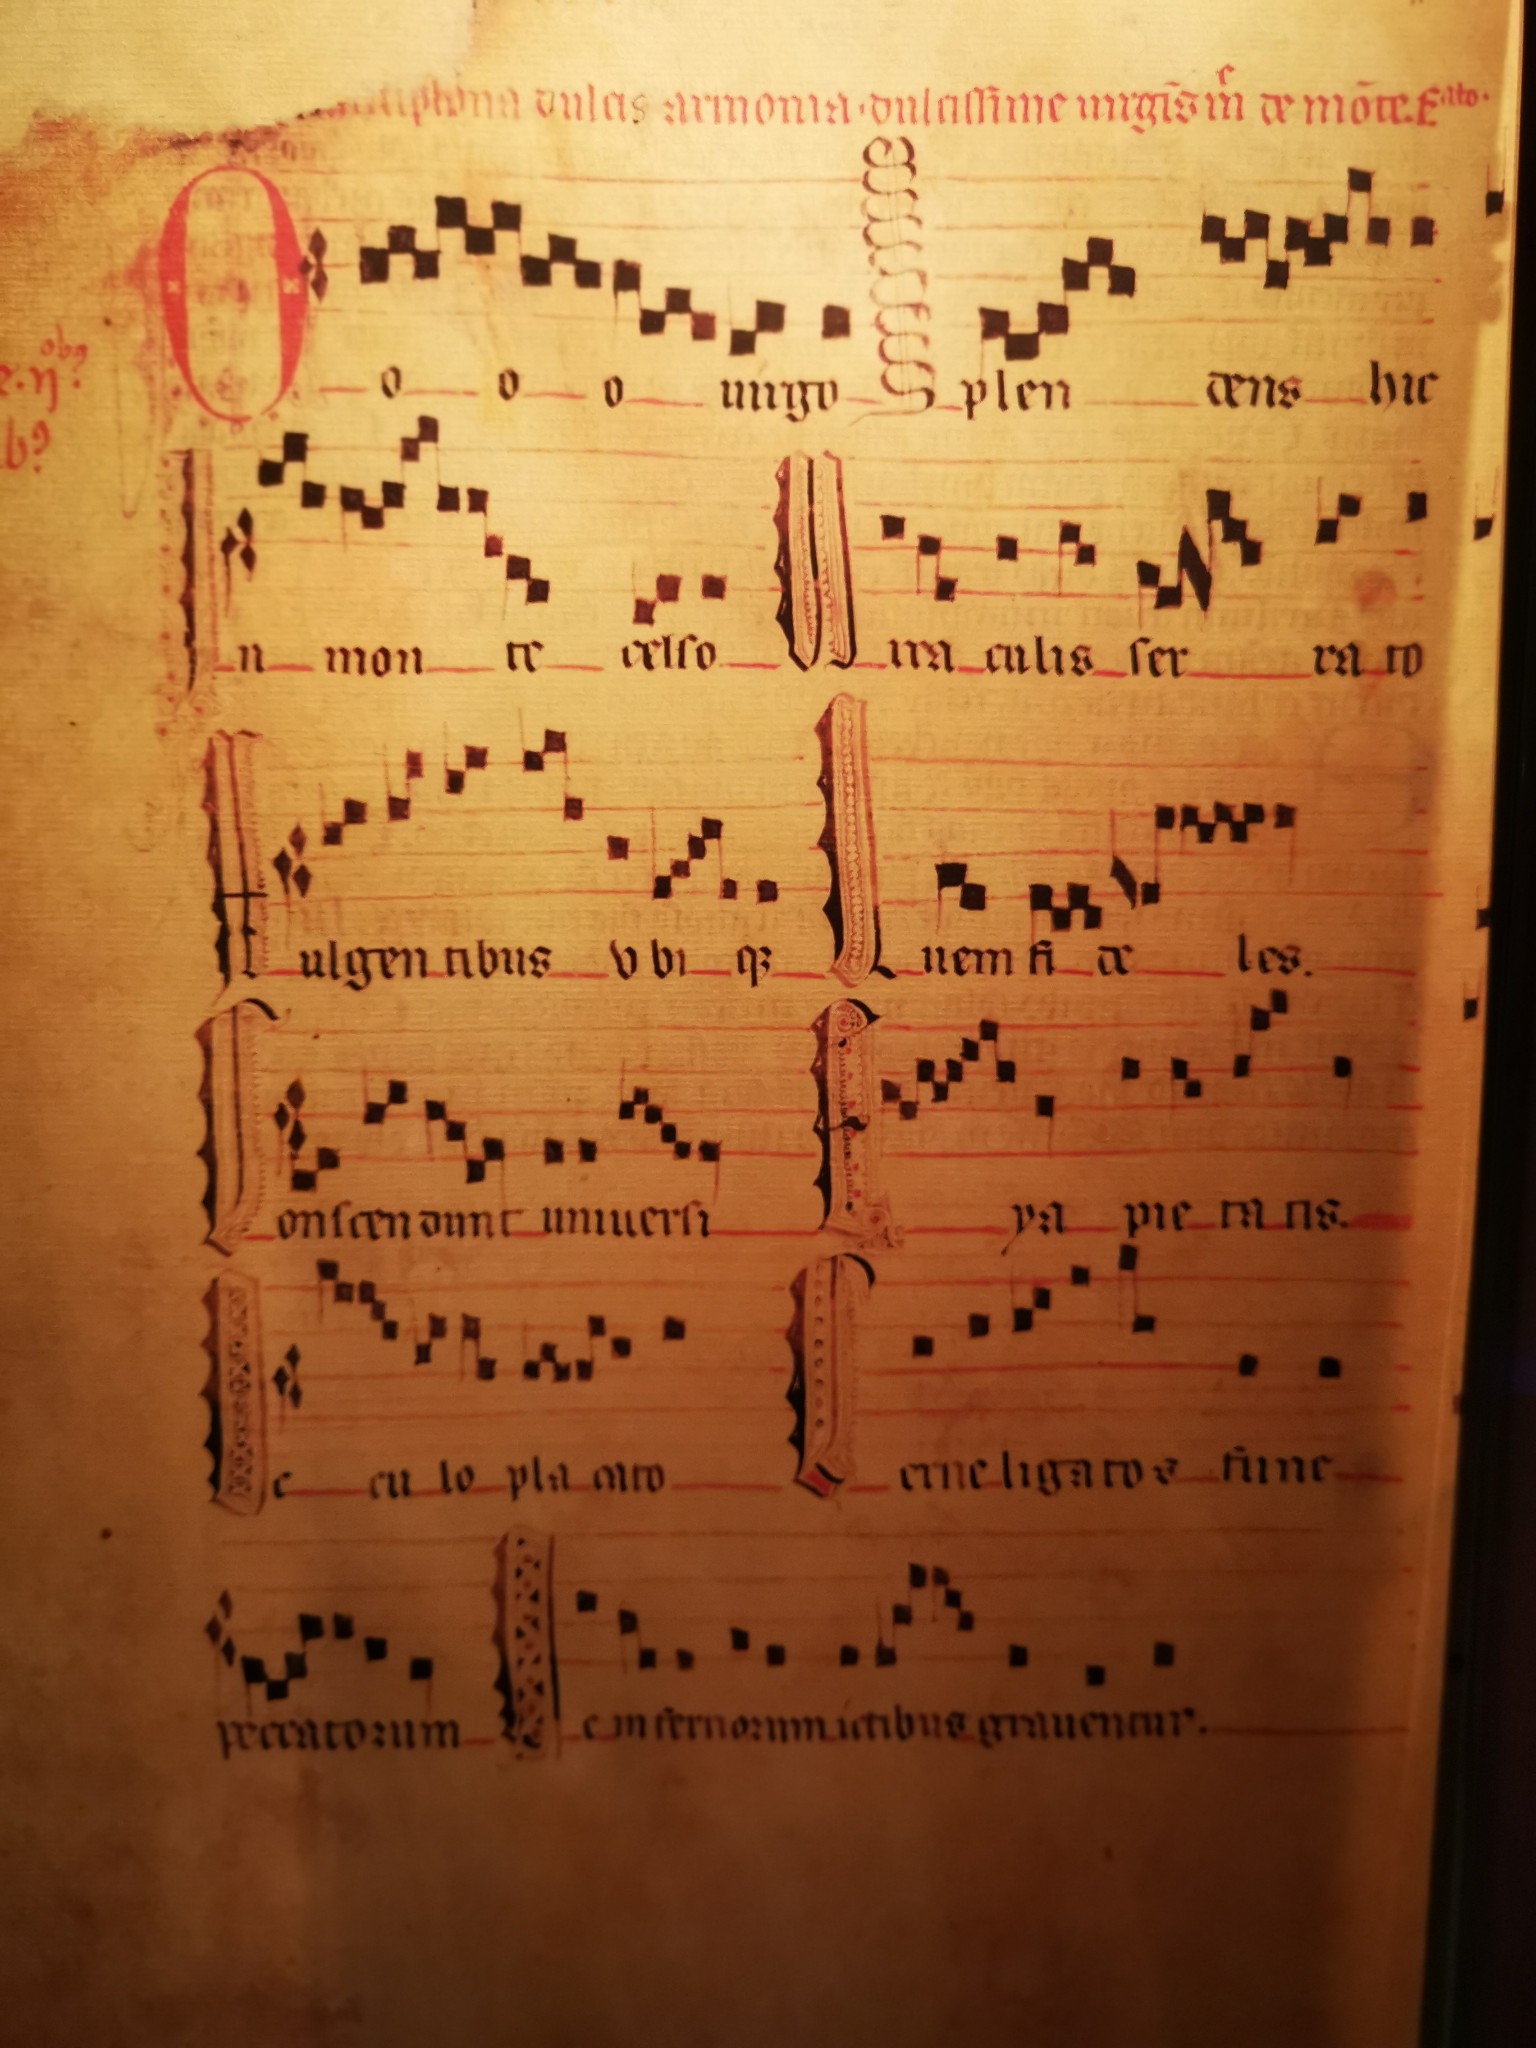 Antiphona dulcis armonia · dulcissime uirgĩs m̃ de mõte. Sʳᵃᵗᵒ·
O o o o uirgo Splen dens hic
In mon te celso Mira culis ser ra to
Fulgen tibus v bi qꝫ Quem fi de les.
Conscen dunt uniuersi Eya pie ta tis.
Oc cu lo pla cato Cerne liga to s fune
peccatorum Ne infernorum ictibus grauentur.